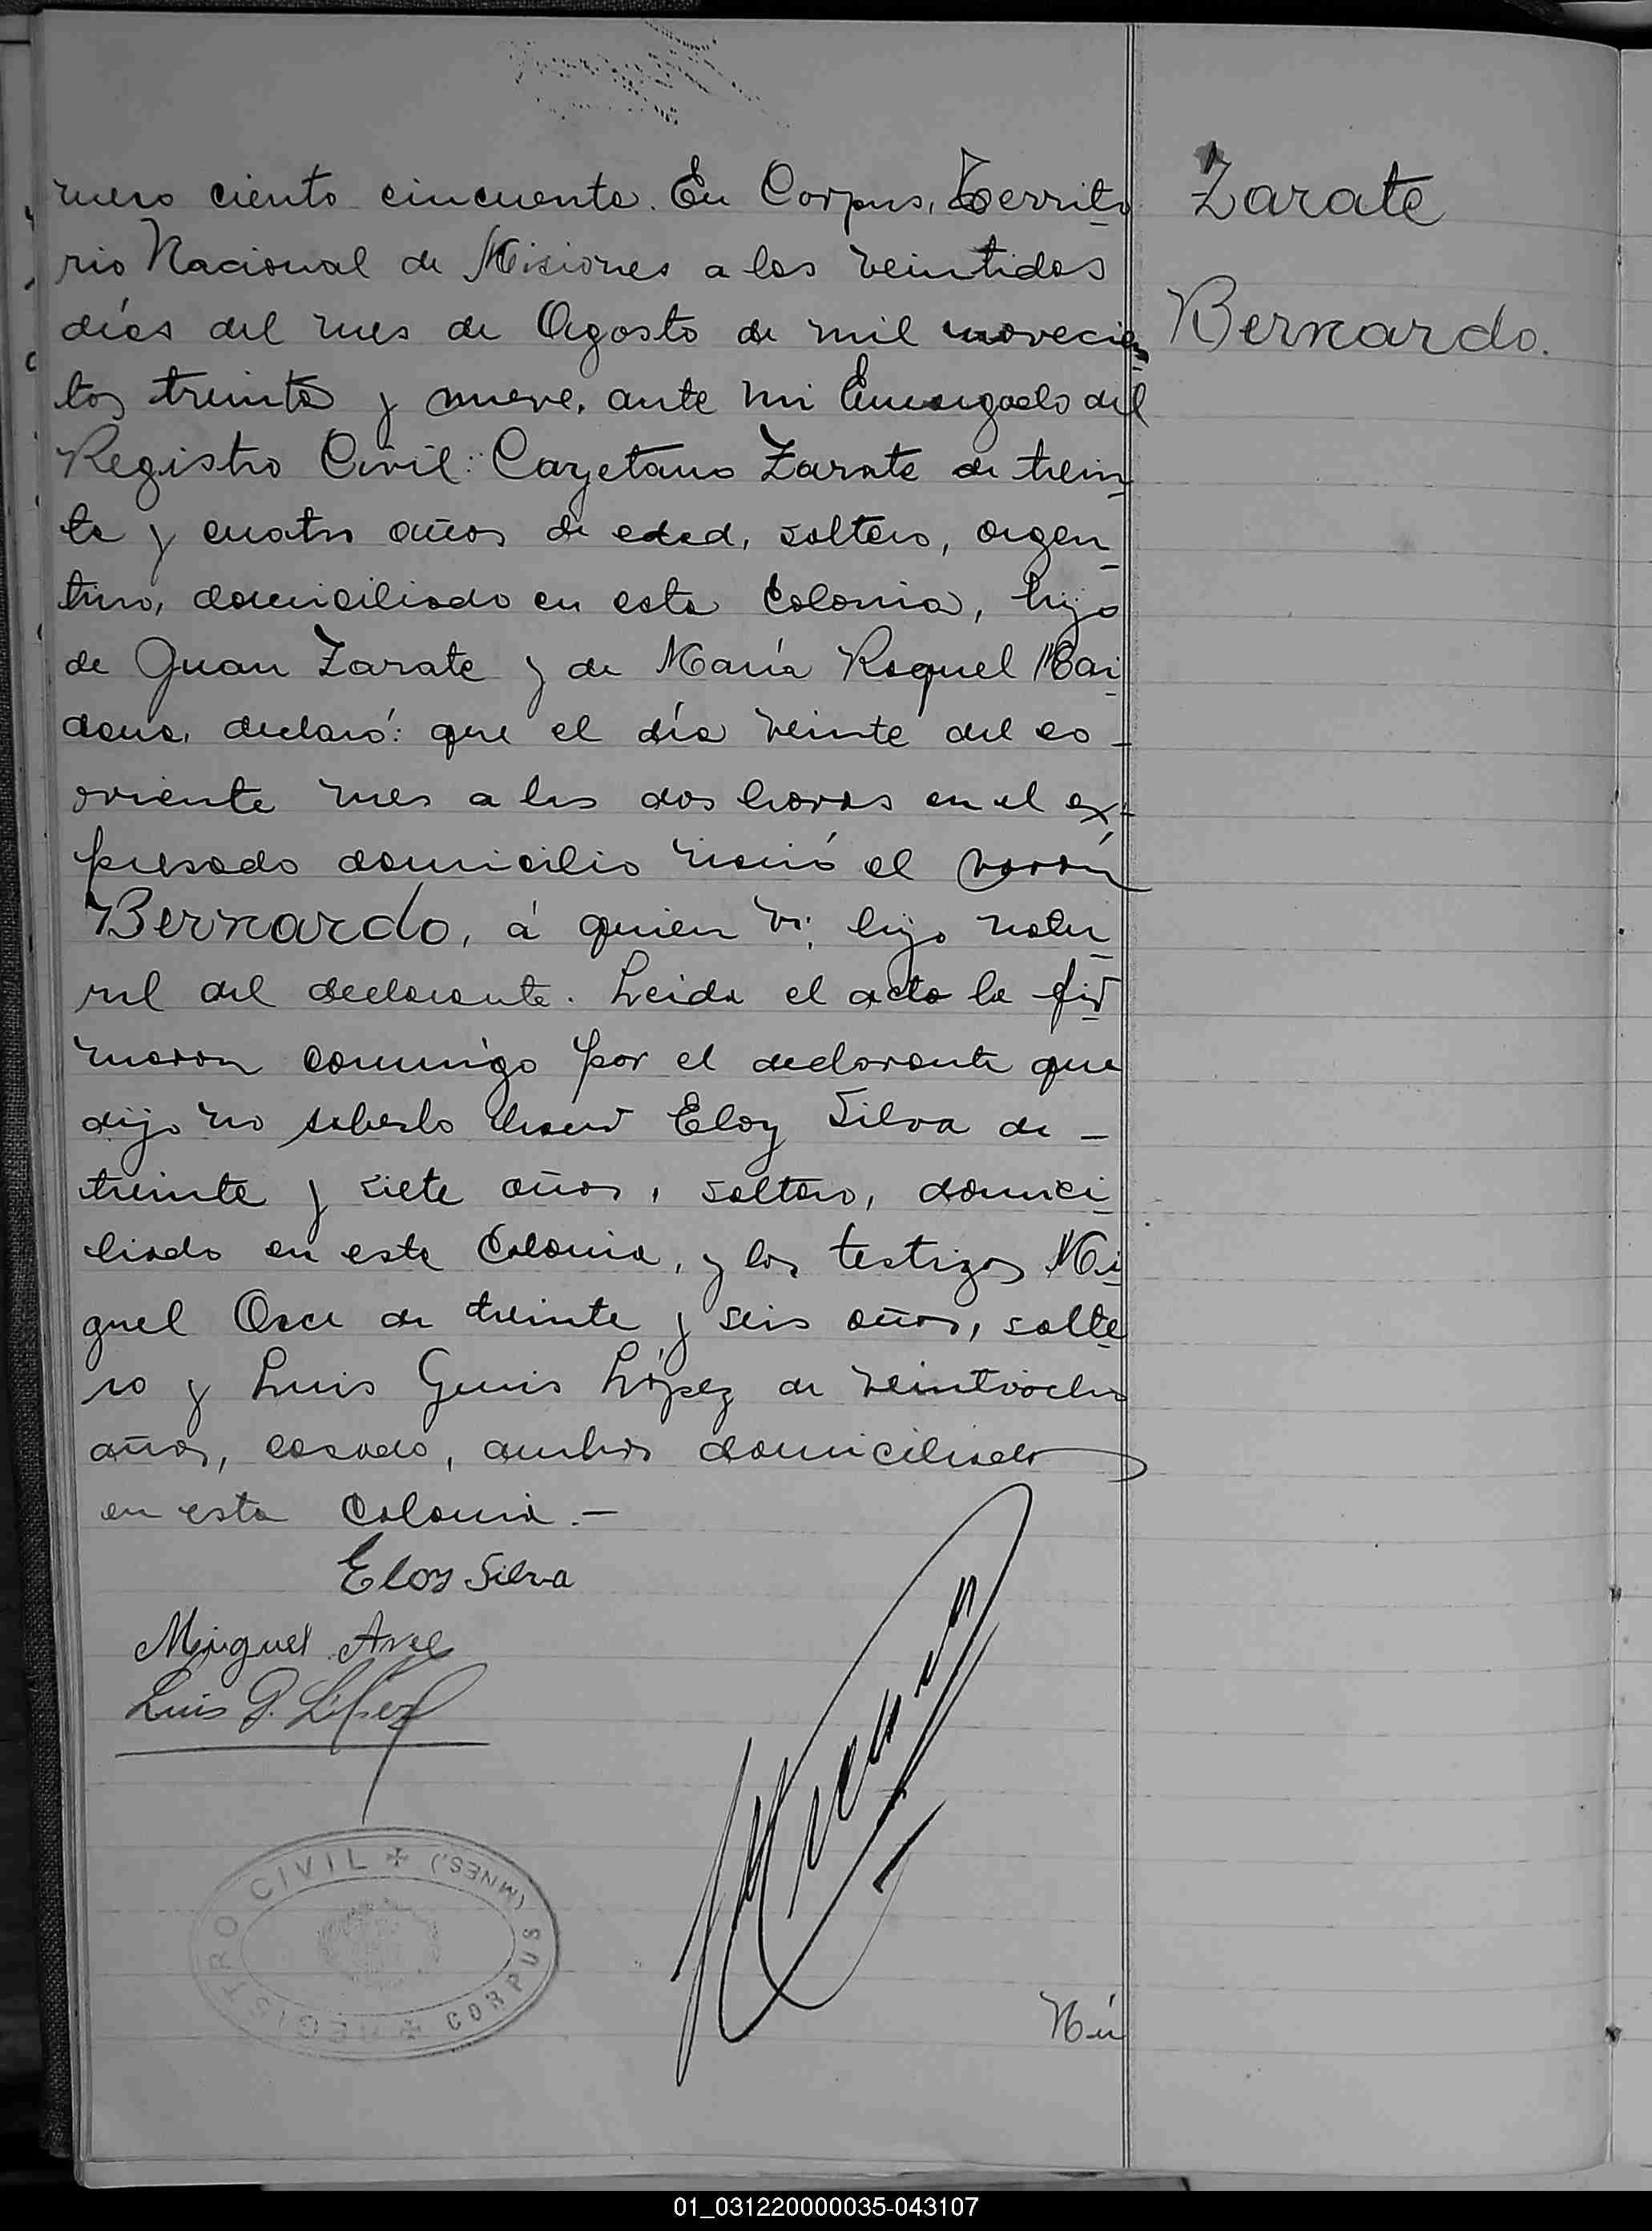 mero ciento cincuenta. En Corpus, Territo
rio Nacional de Misiones a los veintidos
días del mes de Agosto de mil novecien
tos treinta y nueve, ante mi Encargado del
Registro Civil: Cayetano Zarate de trein
ta y cuatro años de edad, soltero, argen
tino, domiciliado en esta Colonia, hijo
de Juan Zarate y de María Raquel Mai
dana, declaró: que el día veinte del co-
rriente mes a las dos horas en el ex-
presado domicilio nació el varón
Bernardo, á quien vi, hijo natu
ral del declarante. Leida el acta la fir
maron conmigo por el declarante que
dijo no saberlo hacer Eloy Silva de -
treinta y siete años, soltero, domici
liado en esta Colonia, y los testigos Mi
guel Arce de treinta y seis años, solte
ro y Luis Genis López de veintiocho
años, casado, ambos domiciliados
en esta Colonia.-
Eloy Silva
Miguel Arce
Luis G. López
REGISTRO CIVIL (MNES.)
CORPUS
Nú
Zarate
Bernardo.
01_031220000035-043107